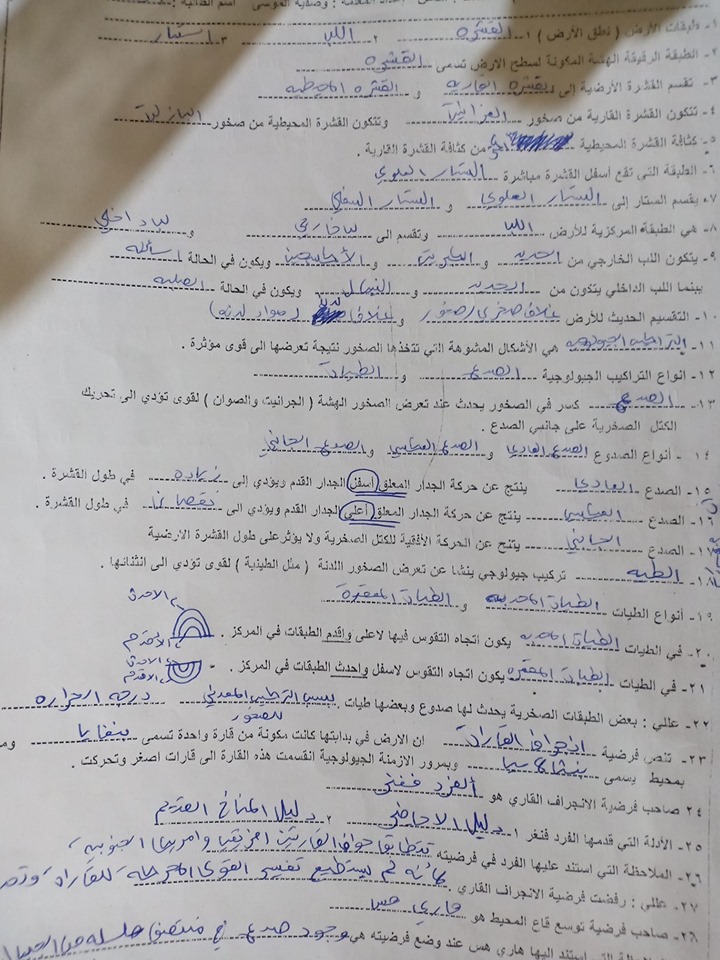 اعداد المعلمة : وصدية الموسى اسم الطالبة :
١- طبقات الأرض ( نطق الأرض ) ١- القشرة ٢- اللب ٣- الستار
٢- الطبقة الرقيقة الهشة المكونة لسطح الارض تسمى القشرة
٣- تقسم القشرة الأرضية إلى القشرة القارية و القشرة المحيطية
٤- تتكون القشرة القارية من صخور الجرانيت وتتكون القشرة المحيطية من صخور البازلت
٥- كثافة القشرة المحيطية من كثافة القشرة القارية .
٦- الطبقة التي تقع أسفل القشرة مباشرة الستار العلوي
٧- يقسم الستار إلى الستار العلوي و الستار السفلي
٨- هي الطبقة المركزية للأرض اللب وتقسم الى لب خارجي و لب داخلي
٩- يتكون اللب الخارجي من الحديد و و الأكسجين ويكون في الحالة السائلة
بينما اللب الداخلي يتكون من الحديد و النيكل ويكون في الحالة الصلبة
١٠- التقسيم الحديث للأرض غلاف صخري و غلاف لدن
١١- التراكيب الجيولوجية هي الأشكال المشوهة التي تتخذها الصخور نتيجة تعرضها الى قوى مؤثرة .
١٢- انواع التراكيب الجيولوجية الصدع و الطيات
١٣- الصدع كسر في الصخور يحدث عند تعرض الصخور الهشة ( الجرانيت والصوان ) لقوى تؤدي الى تحريك
الكتل الصخرية على جانبي الصدع .
١٤- أنواع الصدوع الصدع العادي و الصدع العكسي و الصدع الجانبي
١٥- الصدع العادي ينتج عن حركة الجدار المعلق اسفل الجدار القدم ويؤدي إلى زيادة في طول القشرة .
١٦- الصدع العكسي ينتج عن حركة الجدار المعلق أعلى الجدار القدم ويؤدي الى نقصان في طول القشرة .
١٧- الصدع الجانبي ينتج عن الحركة الأفقية للكتل الصخرية ولا يؤثر على طول القشرة الارضية
١٨- الطية تركيب جيولوجي ينشا عن تعرض الصخور اللدنة ( مثل الطينية ) لقوى تؤدي الى انثنائها .
١٩- أنواع الطيات الطيات المحدبة و الطيات المقعرة
الاحدث
٢٠- في الطيات الطيات المحدبة يكون اتجاه التقوس فيها لاعلى واقدم الطبقات في المركز .
الأقدم
الاحدث
٢١- في الطيات الطيات المقعرة يكون اتجاه التقوس لاسفل واحدث الطبقات في المركز .
الاقدم
٢٢- عللي : بعض الطبقات الصخرية يحدث لها صدوع وبعضها طيات بسبب التركيب المعدني للصخور درجة الحرارة
٢٣- تنص فرضية انجراف القارات ان الارض في بدايتها كانت مكونة من قارة واحدة تسمى بنغايا
بمحيط يسمى بنثالاسيا وبمرور الازمنة الجيولوجية انقسمت هذه القارة الى قارات اصغر وتحركت .
٢٤- صاحب فرضية الانجراف القاري هو الفرد فغنر
٢٥- الأدلة التي قدمها الفرد فنغر ١- دليل الاحافير ٢- دليل المناخ القديم
٢٦- الملاحظة التي استند عليها الفرد في فرضيته تتطابق حواف القارتين افريقيا وامريكا الجنوبية
٢٧- عللي : رفضت فرضية الانجراف القاري لم يستطيع تفسير القوى المحركة للقارات
٢٨- صاحب فرضية توسع قاع المحيط هو هاري هس
التي استند اليها هاري هس عند وضع فرضيته هي وجود صدع في منتصف سلسلة من